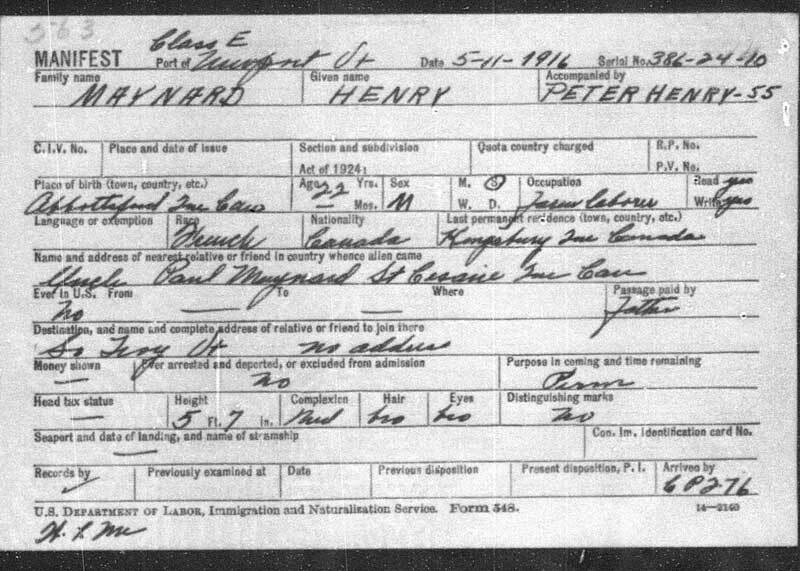 563
Class E
MANIFEST Port of Newport Vt Date 5-11-1916 Serial No. 386-24-10
Family name Given name Accompanied by
MAYNARD HENRY PETER HENRY-55
C.I.V. No. Place and date of issue Section and subdivision Quota country charged R.P. No.
Act of 1924: P.V. No.
Place of birth (town, country, etc.) Age 22 Yrs. Sex M. S Occupation Read yes
Abbottsford Que Can — Mos. M W. D. Farm laborer Write yes
Language or exemption Race Nationality Last permanent residence (town, country, etc.)
French Canada Kingsbury Que Canada
Name and address of nearest relative or friend in country whence alien came
Uncle Paul Maynard St Cesaire Que Can
Ever in U.S. From To Where Passage paid by
No — — Father
Destination, and name and complete address of relative or friend to join there
So Troy Vt no address
Money shown Ever arrested and deported, or excluded from admission Purpose in coming and time remaining
— no Perm
Head tax status Height Complexion Hair Eyes Distinguishing marks
— 5 Ft. 7 In. Med bro bro No
Seaport and date of landing, and name of steamship Con. Im. Identification card No.
—
Records by Previously examined at Date Previous disposition Present disposition, P. I. Arrived by
✓ CP276
U.S. DEPARTMENT OF LABOR, Immigration and Naturalization Service. Form 548. 14—2160